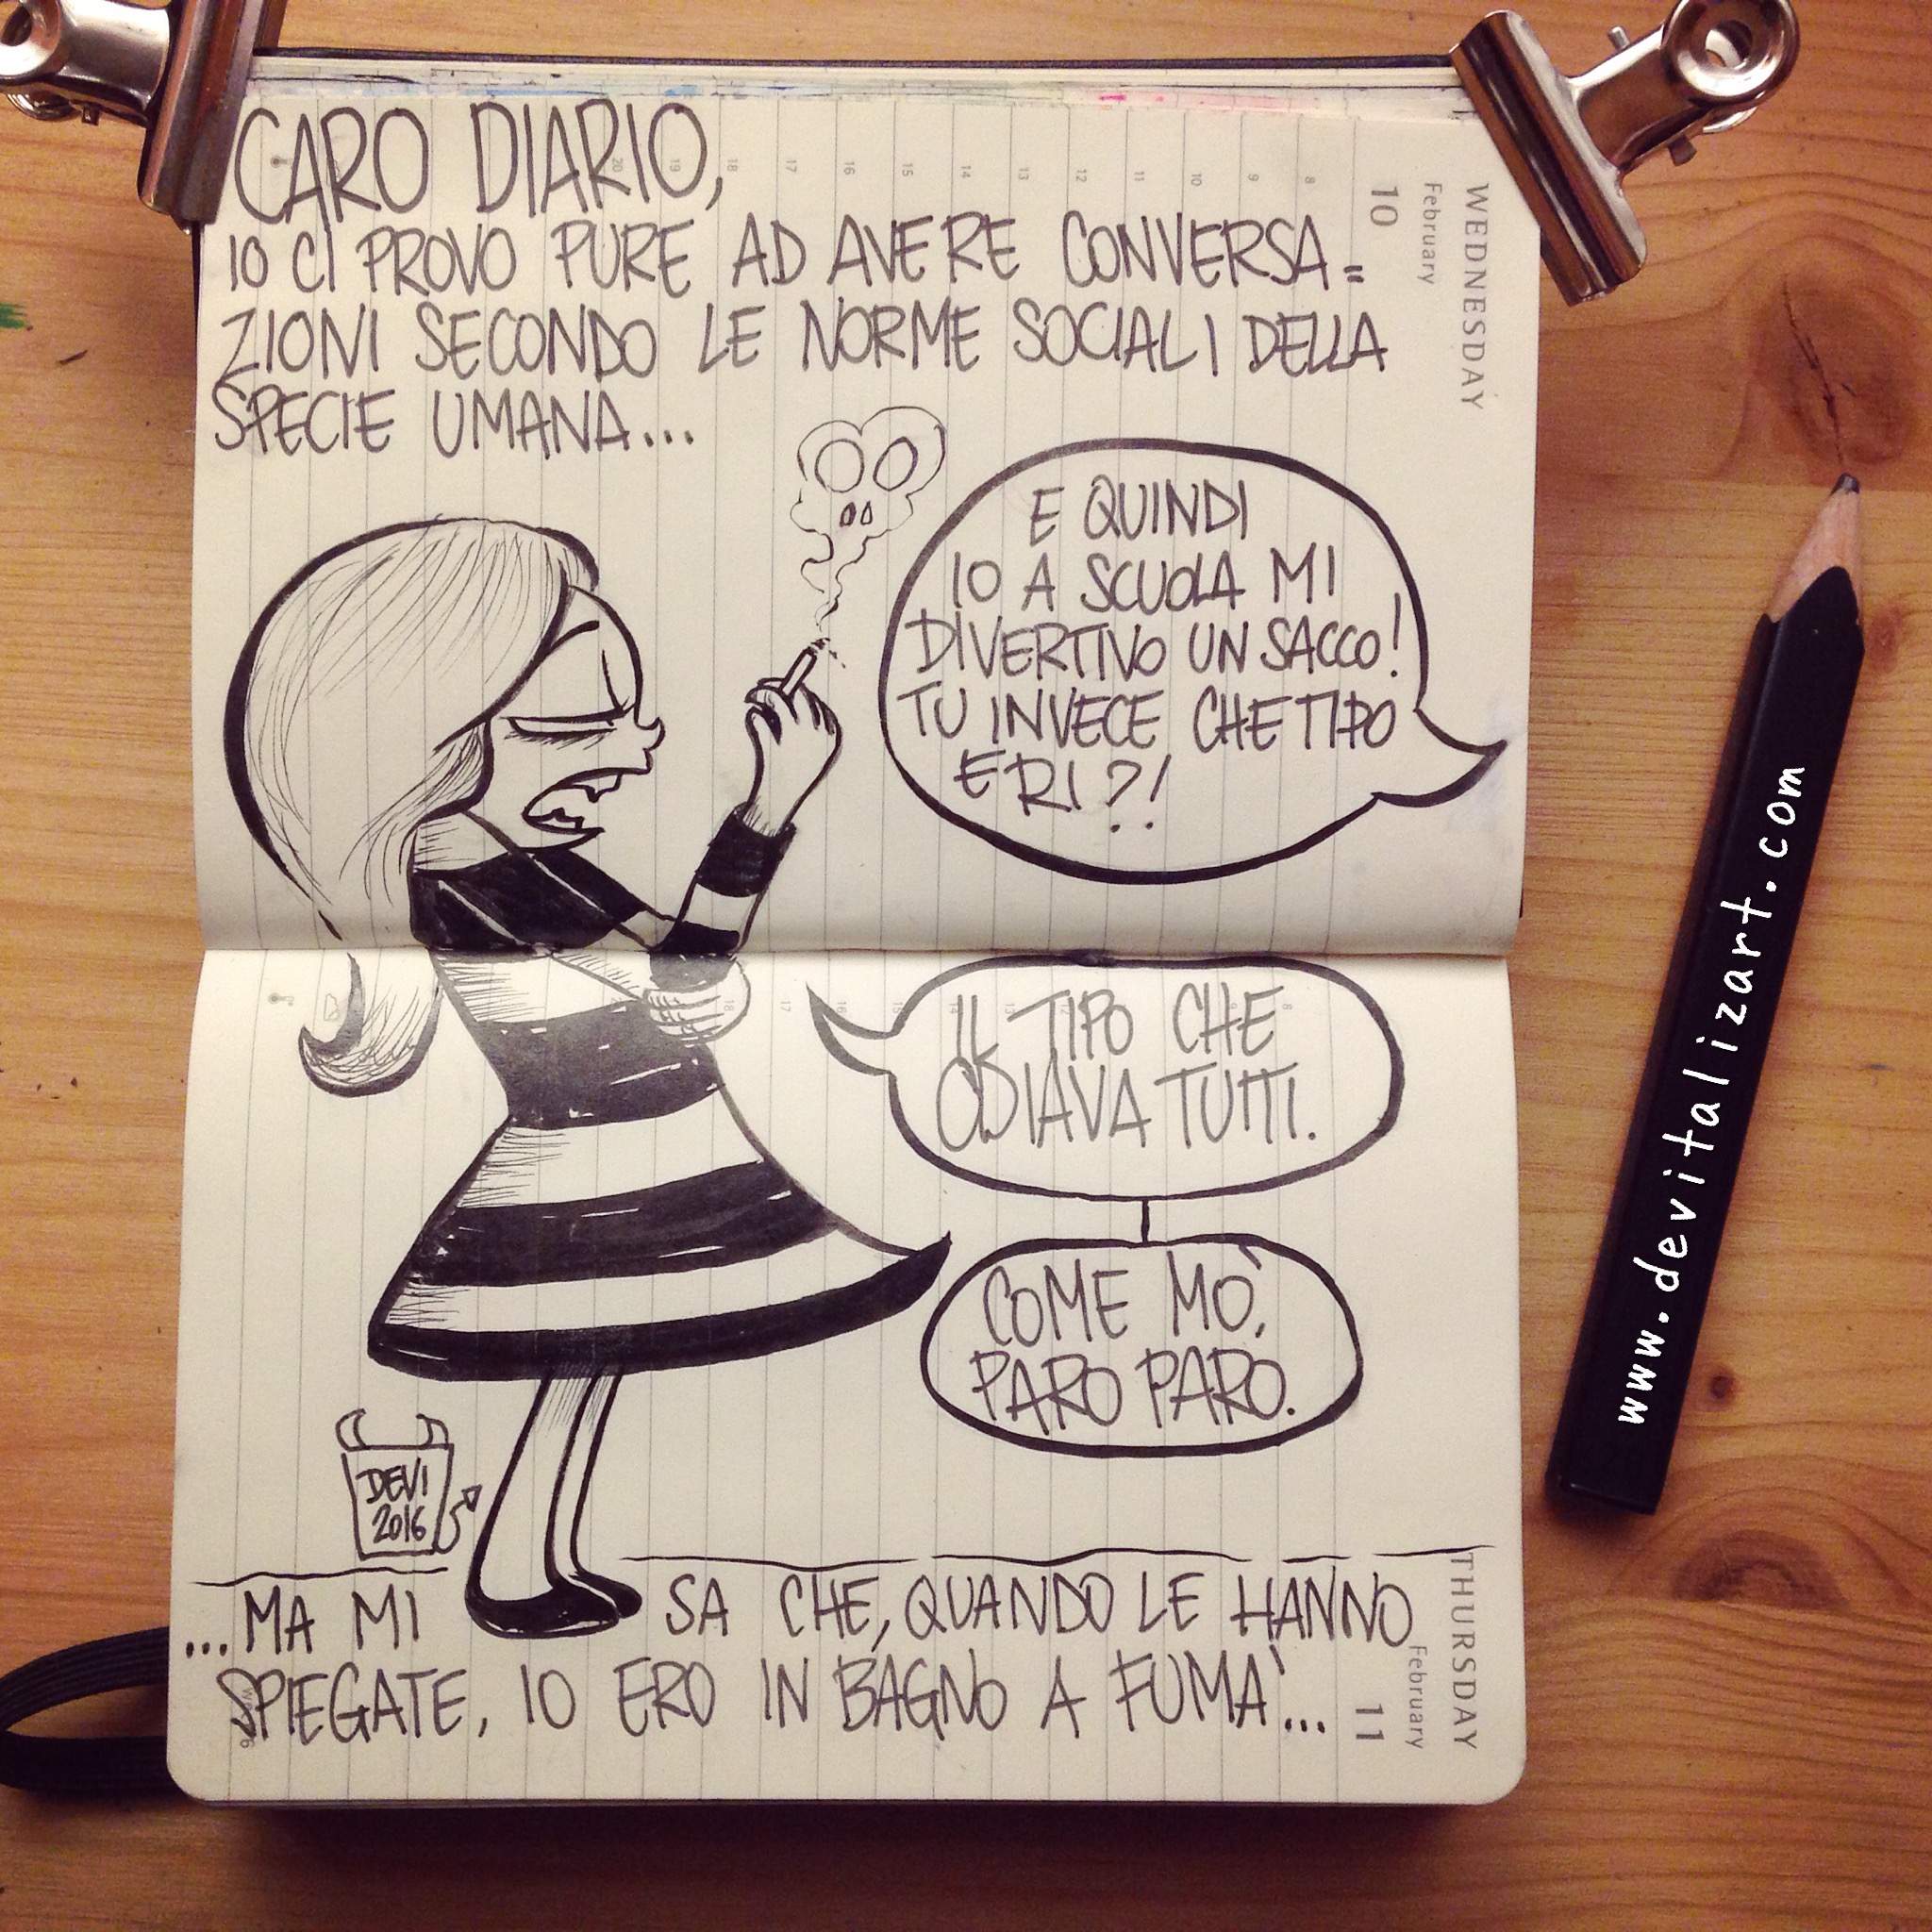 CARO DIARIO,
IO CI PROVO PURE AD AVERE CONVERSA=
ZIONI SECONDO LE NORME SOCIALI DELLA
SPECIE UMANA...
E QUINDI
IO A SCUOLA MI
DIVERTIVO UN SACCO!
TU INVECE CHE TIPO
ERI?!
IL TIPO CHE
ODIAVA TUTTI.
COME MO',
PARO PARO.
DEVI
2016
...MA MI SA CHE, QUANDO LE HANNO
SPIEGATE, IO ERO IN BAGNO A FUMA'...
WEDNESDAY
February
10
8 9 10 11 12 13 14 15 16 17 18 19 20
THURSDAY
February
11
www.devitalizart.com